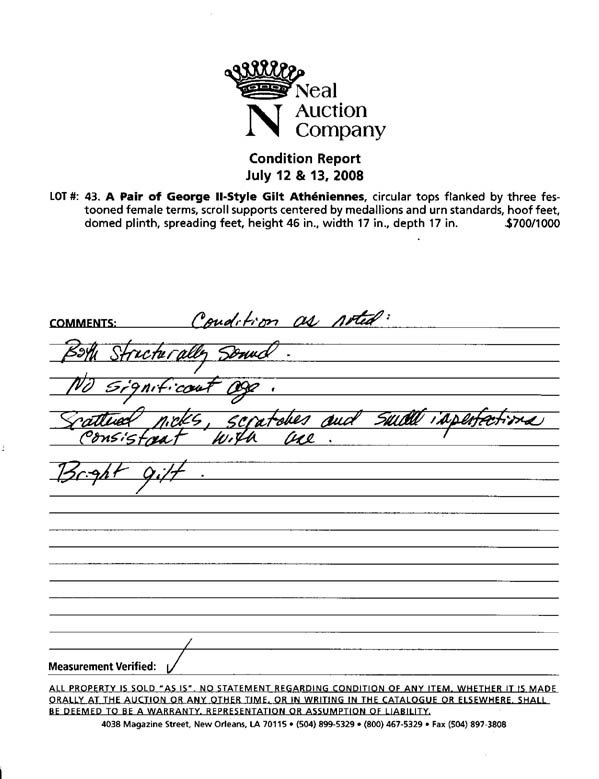 Neal
N Auction
Company
Condition Report
July 12 & 13, 2008
LOT #: 43. A Pair of George II-Style Gilt Athéniennes, circular tops flanked by three fes-
tooned female terms, scroll supports centered by medallions and urn standards, hoof feet,
domed plinth, spreading feet, height 46 in., width 17 in., depth 17 in. $700/1000
COMMENTS: Condition as noted:
Both Structurally Sound.
No significant age.
Scattered nicks, scratches and small imperfections
consistant with use.
Bright gilt.
Measurement Verified: ✓
ALL PROPERTY IS SOLD "AS IS". NO STATEMENT REGARDING CONDITION OF ANY ITEM, WHETHER IT IS MADE
ORALLY AT THE AUCTION OR ANY OTHER TIME, OR IN WRITING IN THE CATALOGUE OR ELSEWHERE, SHALL
BE DEEMED TO BE A WARRANTY, REPRESENTATION OR ASSUMPTION OF LIABILITY.
4038 Magazine Street, New Orleans, LA 70115 • (504) 899-5329 • (800) 467-5329 • Fax (504) 897-3808